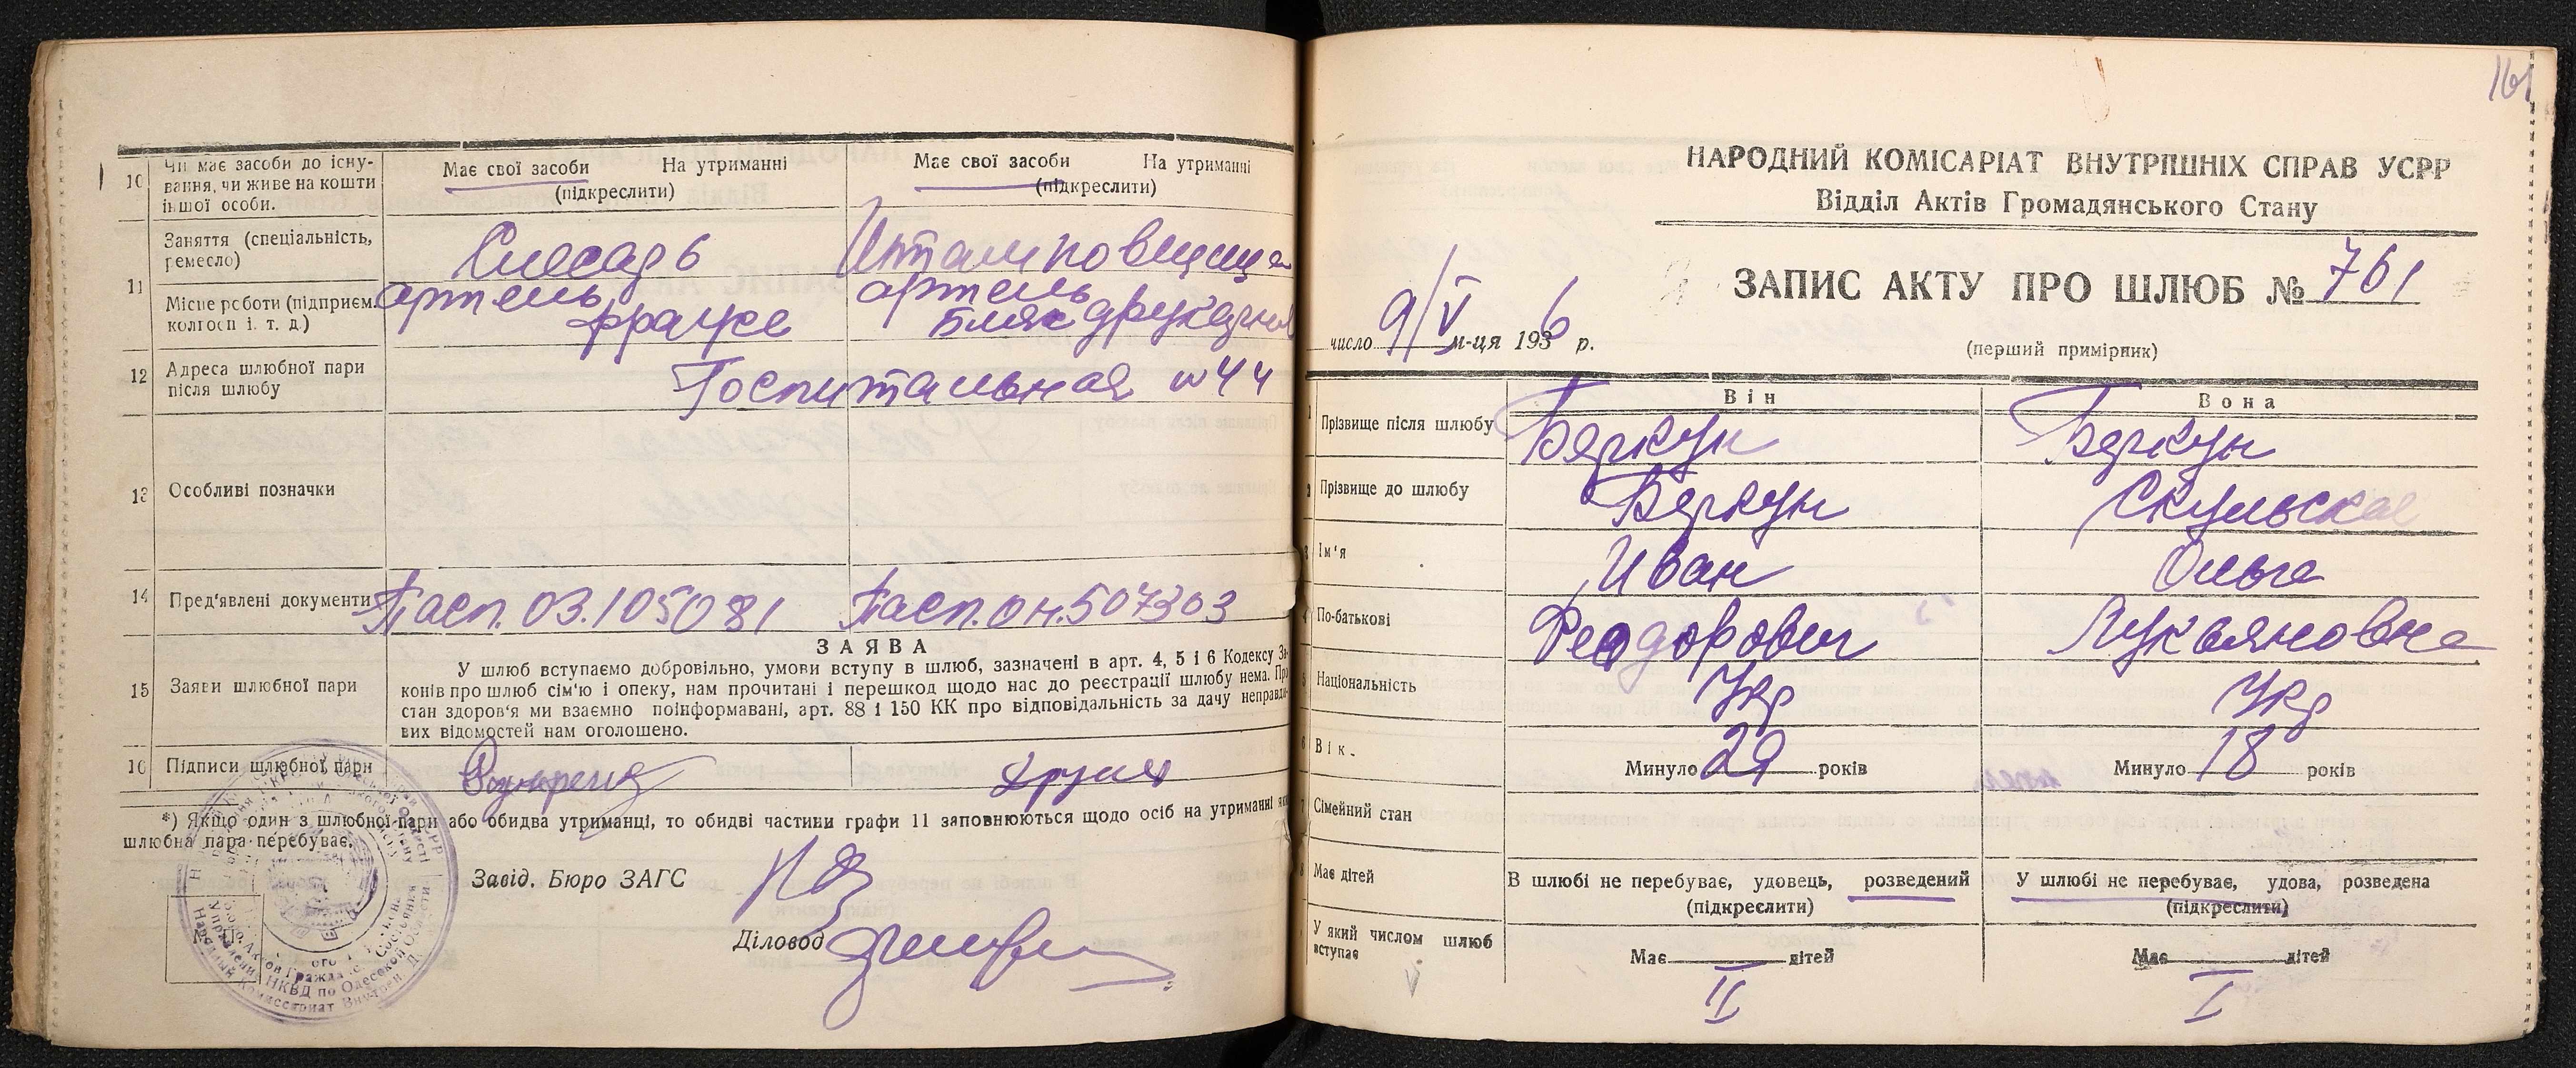 10
Чи має засоби до існу-
вання, чи живе на кошти
іншої особи.
Має свої засоби На утриманні
(підкреслити)
Має свої засоби На утриманні
(підкреслити)
11
Заняття (спеціальність,
ремесло)
Слесарь
Штамповщица
Місце роботи (підприєм.
колгосп і. т. д.)
артель
артель
Бляхдрукарня
12
Адреса шлюбної пари
після шлюбу
Госпитальная №44
13
Особливі позначки
14
Пред'явлені документи
Пасп. 03.105081
Пасп. ОН.507303
ЗАЯВА
15
Заяви шлюбної пари
У шлюб вступаємо добровільно, умови вступу в шлюб, зазначені в арт. 4, 5 і 6 Кодексу За-
конів про шлюб сім'ю і опеку, нам прочитані і перешкод щодо нас до реєстрації шлюбу нема. Про
стан здоров'я ми взаємно поінформавані, арт. 88 і 150 КК про відповідальність за дачу неправди-
вих відомостей нам оголошено.
16
Підписи шлюбної пари
*) Якщо один з шлюбної пари або обидва утриманці, то обидві частини графи 11 заповнюються щодо осіб на утриманні
шлюбна пара перебуває.
Завід. Бюро ЗАГС
Діловод
161
НАРОДНИЙ КОМІСАРІАТ ВНУТРІШНІХ СПРАВ УСРР
Відділ Актів Громадянського Стану
ЗАПИС АКТУ ПРО ШЛЮБ № 761
число 9/V м-ця 1936 р.
(перший примірник)
Він
Вона
1
Прізвище після шлюбу
Беркун
Беркун
2
Прізвище до шлюбу
Беркун
Скульская
3
Ім'я
Иван
Ольга
4
По-батькові
Феодорович
Лукьяновна
5
Національність
Укр
Укр
6
Вік.
Минуло 29 років
Минуло 18 років
7
Сімейний стан
8
Має дітей
В шлюбі не перебуває, удовець, розведений
(підкреслити)
У шлюбі не перебуває, удова, розведена
(підкреслити)
У який числом шлюб
вступає
Має дітей
Має дітей
II
I